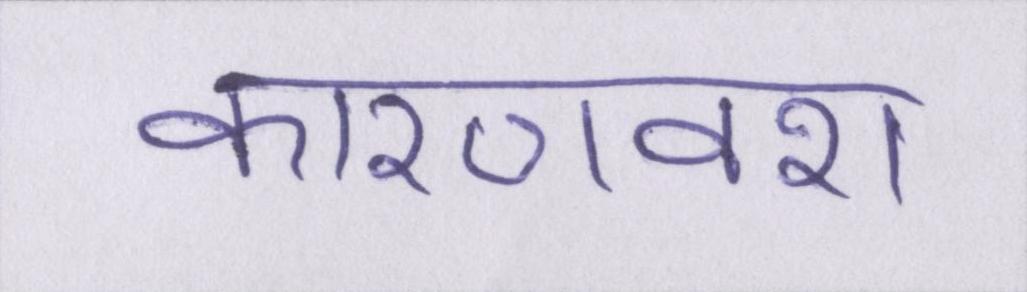 कारणवश